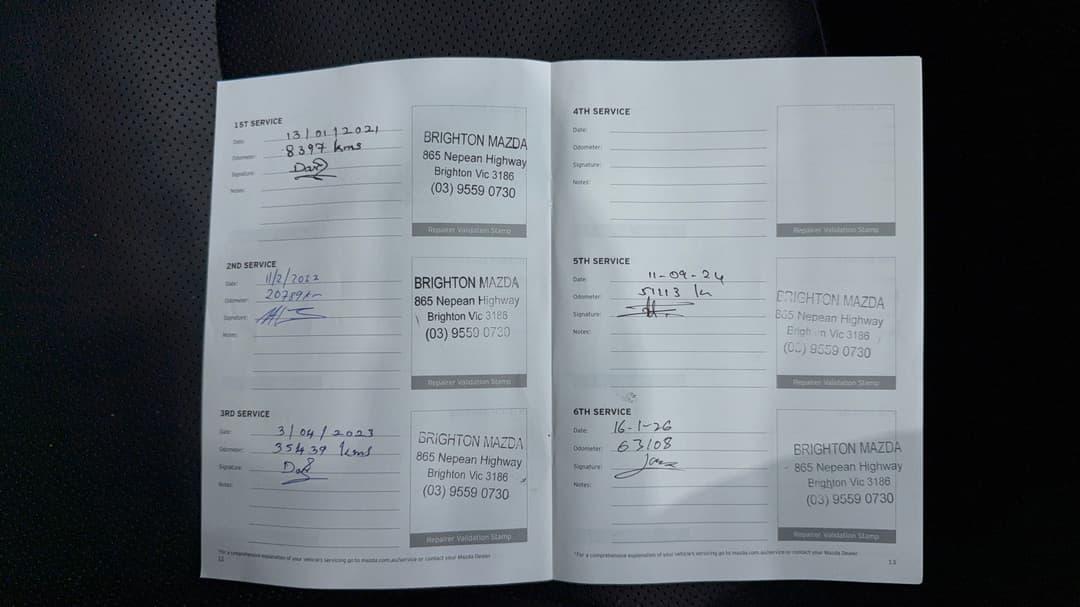 1ST SERVICE
Date: 13/01/2021
Odometer: 8397 kms
Signature:
Notes:
BRIGHTON MAZDA
865 Nepean Highway
Brighton Vic 3186
(03) 9559 0730
Repairer Validation Stamp
2ND SERVICE
Date: 11/2/2022
Odometer: 20789km
Signature:
Notes:
BRIGHTON MAZDA
865 Nepean Highway
Brighton Vic 3186
(03) 9559 0730
Repairer Validation Stamp
3RD SERVICE
Date: 3/04/2023
Odometer: 35439 kms
Signature:
Notes:
BRIGHTON MAZDA
865 Nepean Highway
Brighton Vic 3186
(03) 9559 0730
Repairer Validation Stamp
*For a comprehensive explanation of your vehicle's servicing go to mazda.com.au/service or contact your Mazda Dealer
12
4TH SERVICE
Date:
Odometer:
Signature:
Notes:
Repairer Validation Stamp
5TH SERVICE
Date: 11-09-24
Odometer: 51113 km
Signature:
Notes:
BRIGHTON MAZDA
865 Nepean Highway
Brighton Vic 3186
(03) 9559 0730
Repairer Validation Stamp
6TH SERVICE
Date: 16-1-26
Odometer: 63108
Signature:
Notes:
BRIGHTON MAZDA
865 Nepean Highway
Brighton Vic 3186
(03) 9559 0730
Repairer Validation Stamp
*For a comprehensive explanation of your vehicle's servicing go to mazda.com.au/service or contact your Mazda Dealer
13